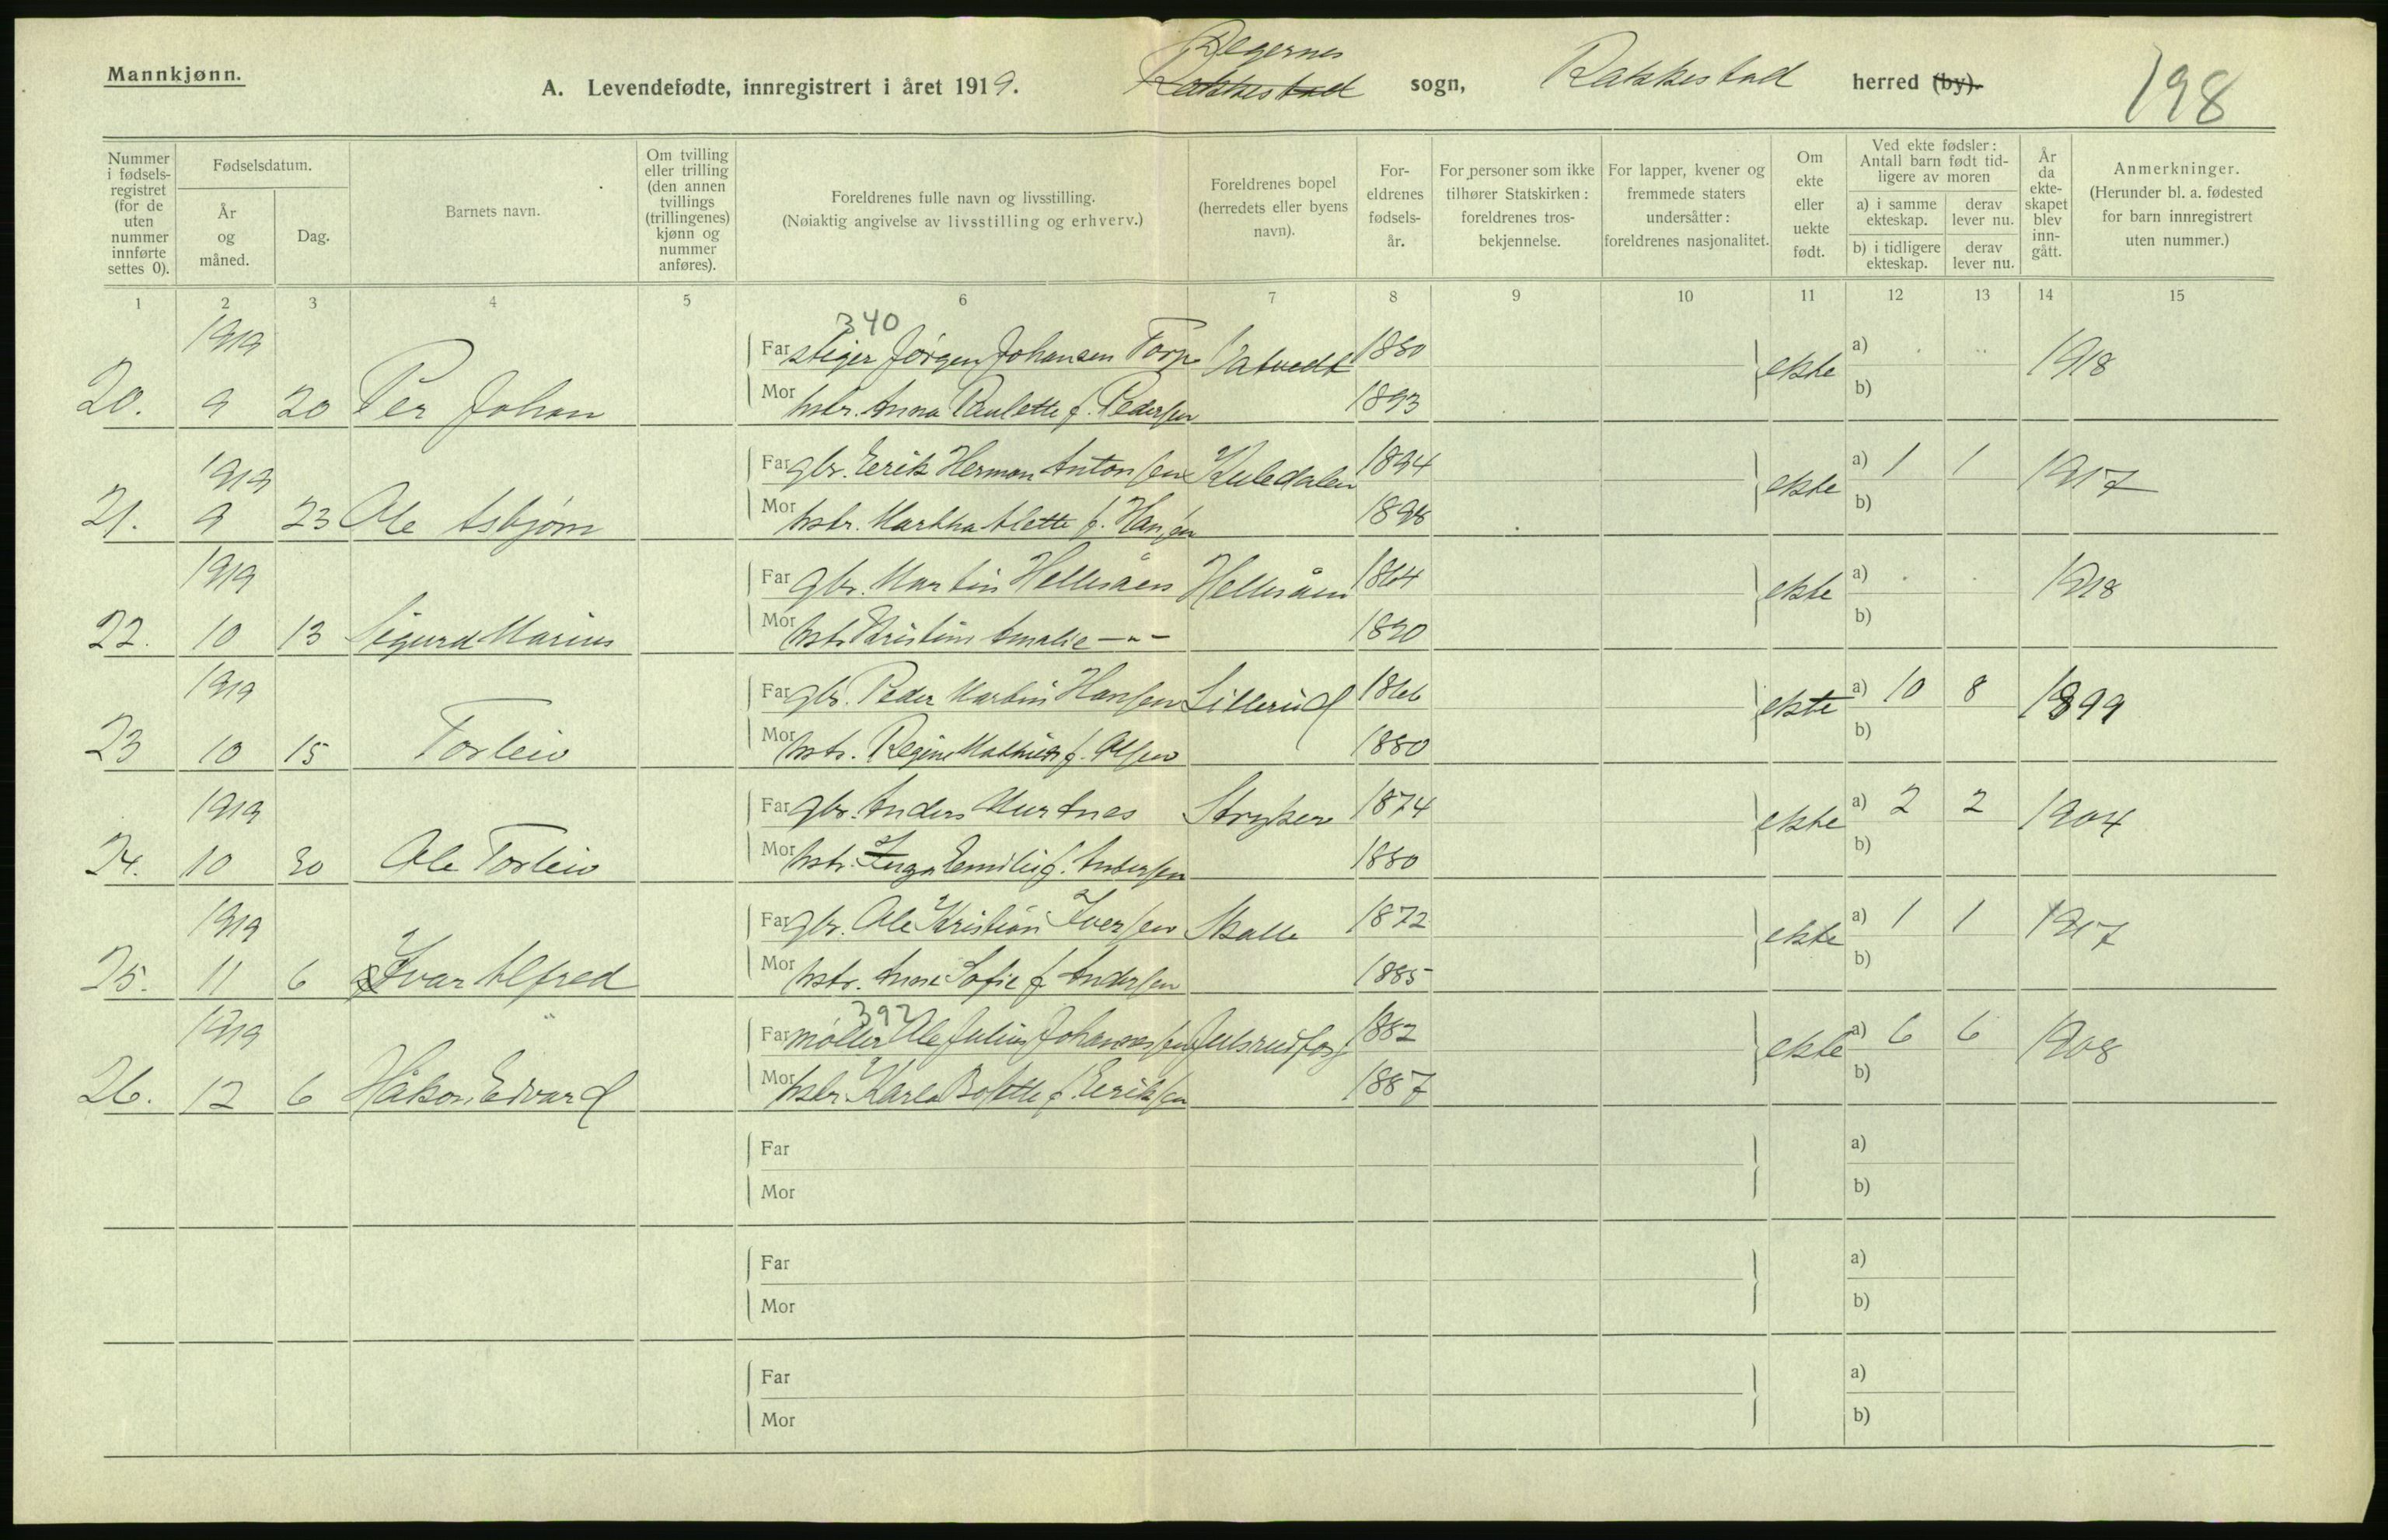 Mannkjønn.
A. Levendefødte, innregistrert i året 1919.
Degernes
Rakkestad sogn, Rakkestad herred (by).
198
Nummer i fødselsregistret (for de uten nummer innførte settes 0).
Fødselsdatum.
År og måned.
Dag.
Barnets navn.
Om tvilling eller trilling (den annen tvillings (trillingenes) kjønn og nummer anføres).
Foreldrenes fulle navn og livsstilling.
(Nøiaktig angivelse av livsstilling og erhverv.)
Foreldrenes bopel (herredets eller byens navn).
Foreldrenes fødselsår.
For personer som ikke tilhører Statskirken: foreldrenes trosbekjennelse.
For lapper, kvener og fremmede staters undersåtter: foreldrenes nasjonalitet.
Om ekte eller uekte født.
Ved ekte fødsler: Antall barn født tidligere av moren
a) i samme ekteskap.
derav lever nu.
b) i tidligere ekteskap.
derav lever nu.
År da ekteskapet blev inngått.
Anmerkninger.
(Herunder bl. a. fødested for barn innregistrert uten nummer.)
1 2 3 4 5 6 7 8 9 10 11 12 13 14 15
340
1919 Far stiger Jørgen Johansen Torp 1880 a)
20. 9 20 Per Johan Mor hstr. Anna Paulette f. Pedersen 1893 ekte b) 1918
1919 Far gbr. Eerik Herman Antonsen Kuledalen 1894 a) 1 1
21. 9 23 Ole Asbjørn Mor hstr. Martha Alette f. Hansen 1898 ekte b) 1917
1919 Far gbr. Martin Hellesåen Hellesåen 1864 a)
22. 10 13 Sigurd Marius Mor hstr. Kristine Amalie —"— 1890 ekte b) 1918
1919 Far gbr. Peder Martin Hansen Lillerud 1866 a) 10 8
23 10 15 Torleiv Mor hstr. Regine Mathilde f. Olsen 1880 ekte b) 1899
1919 Far gbr. Anders 1874 a) 2 2
24. 10 30 Ole Torleiv Mor hstr. Inga Emilie f. Andersen 1880 ekte b) 1904
1919 Far gbr. Ole Kristian Iversen Skolle 1872 a) 1 1
25. 11 6 Ivar Alfred Mor hstr. Anne Sofie f. Andersen 1885 ekte b) 1917
392
1919 Far møller Ole Julius Johannessen Julsrudfoss 1882 a) 6 6
26. 12 6 Håkon Edvard Mor hstr. Karla Bolette f. Eeriksen 1887 ekte b) 1908
Far a)
Mor b)
Far a)
Mor b)
Far a)
Mor b)